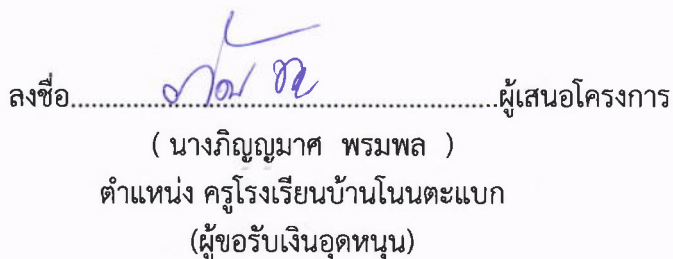 ลงชื่อ................................................................ผู้เสนอโครงการ
( นางภิญญมาศ พรมพล )
ตำแหน่ง ครูโรงเรียนบ้านโนนตะแบก
(ผู้ขอรับเงินอุดหนุน)